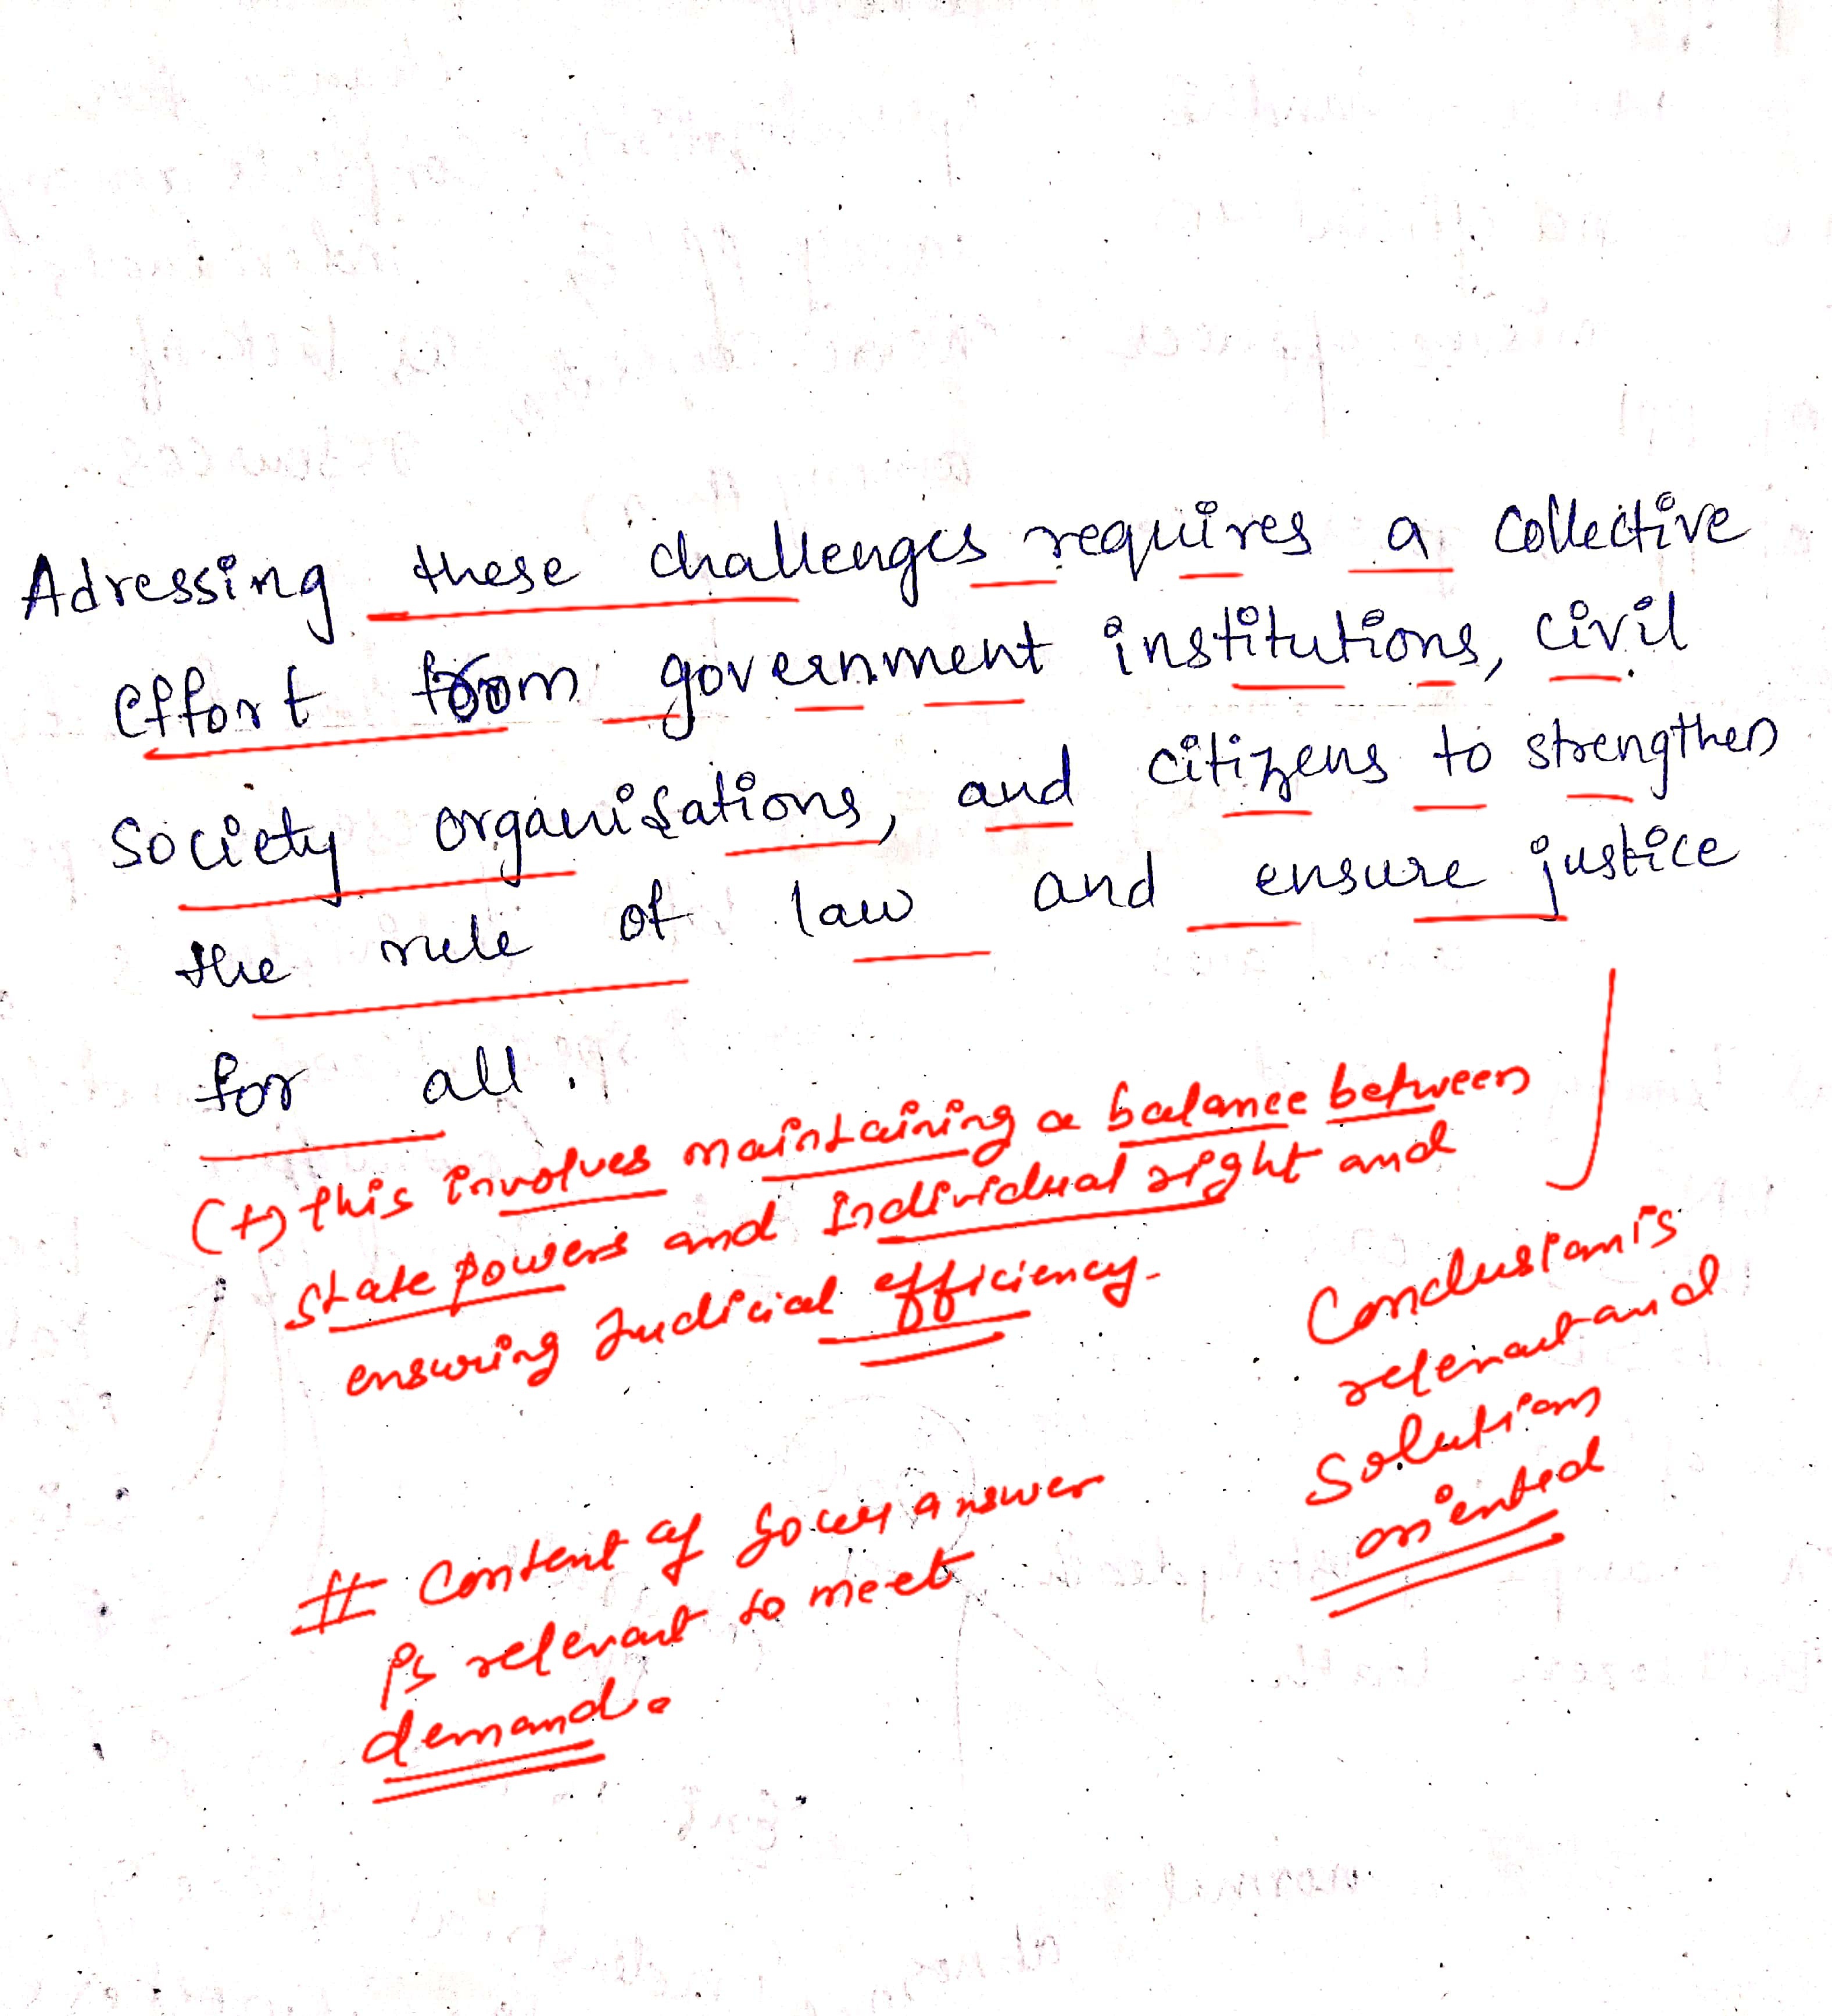 Adressing these challenges requires a collective
effort from government institutions, civil
society organisations, and citizens to strengthen
the rule of law and ensure justice
for all.
(+) this involves maintaining a balance between
state powers and Individual right and
ensuring Judicial efficiency.
Conclusion is
relevant and
Solution
oriented
# Content of your answer
is relevant to meet
demand.